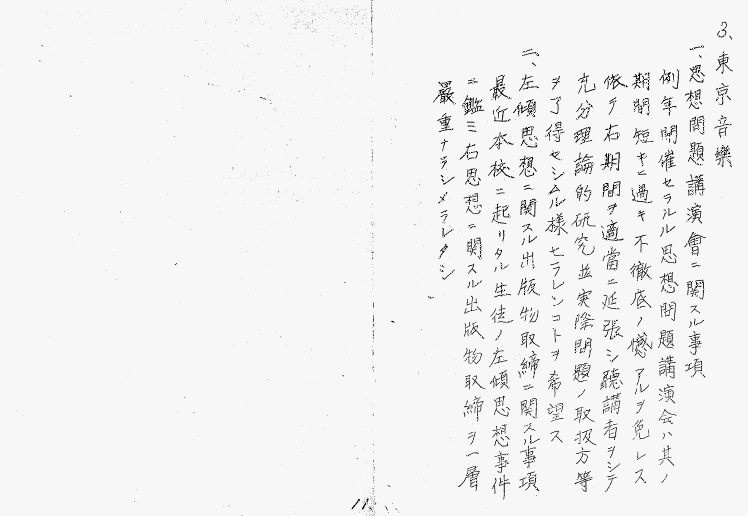 3、東京音樂
一、思想問題講演會ニ関スル事項
例年開催セラルル思想問題講演会ハ其ノ
期間短キニ過キ不徹底ノ憾アルヲ免レス
依テ右期間ヲ適當ニ延張シ聽講者ヲシテ
充分理論的研究並実際問題ノ取扱方等
ヲ了得セシムル様セラレンコトヲ希望ス
二、左傾思想ニ関スル出版物取締ニ関スル事項
最近本校ニ起リタル生徒ノ左傾思想事件
ニ鑑ミ右思想ニ関スル出版物取締ヲ一層
嚴重ナラシメラレタシ
11